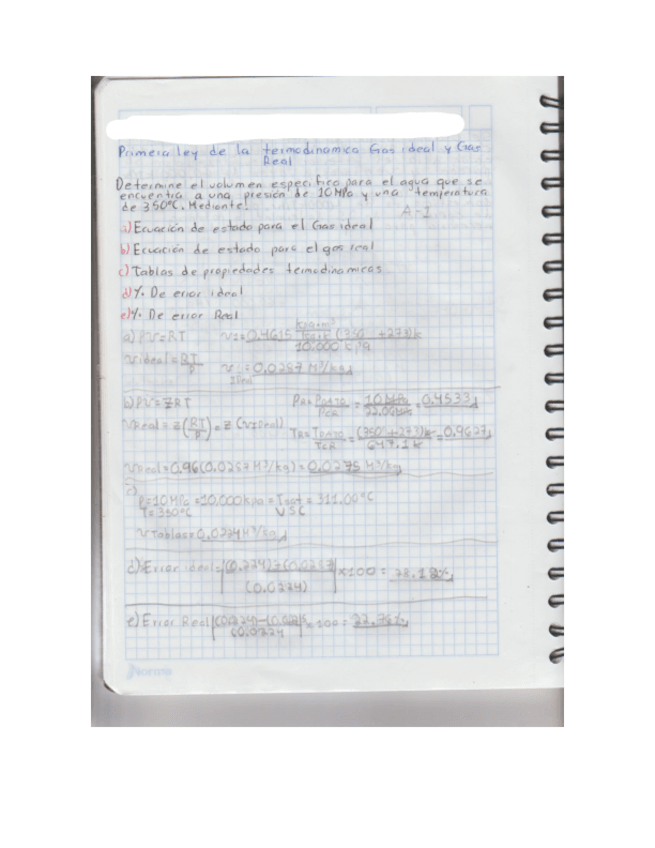 Primera ley de la termodinamica Gas ideal y Gas
Real
Determine el volumen especifico para el agua que se
encuentra a una presión de 10 MPa y una temperatura
de 350°C. Mediante:
A-1
a) Ecuación de estado para el Gas ideal
b) Ecuación de estado para el gas real
c) Tablas de propiedades termodinamicas
d) %. De error ideal
e) %. De error Real
a) PV=RT
10.000 kPa
V ideal = RT/P
0.0287 M³/kg
b) PV=ZRT
= 0.4533
V Real = Z(RT/P) = Z (V ideal)
(350°+273)k
647.1 k
= 0.9627
V Real = 0.96(0.0287 M³/kg) = 0.0275 M³/kg
c)
P=10 MPa = 10.000 kpa = Tsat = 311.00°C
T=350°C
VSC
V Tablas = 0.0224 M³/kg
d) Error ideal=
x100 = 28.12%
(0.0224)
e) Error Real
=100= 22.76%
Norma